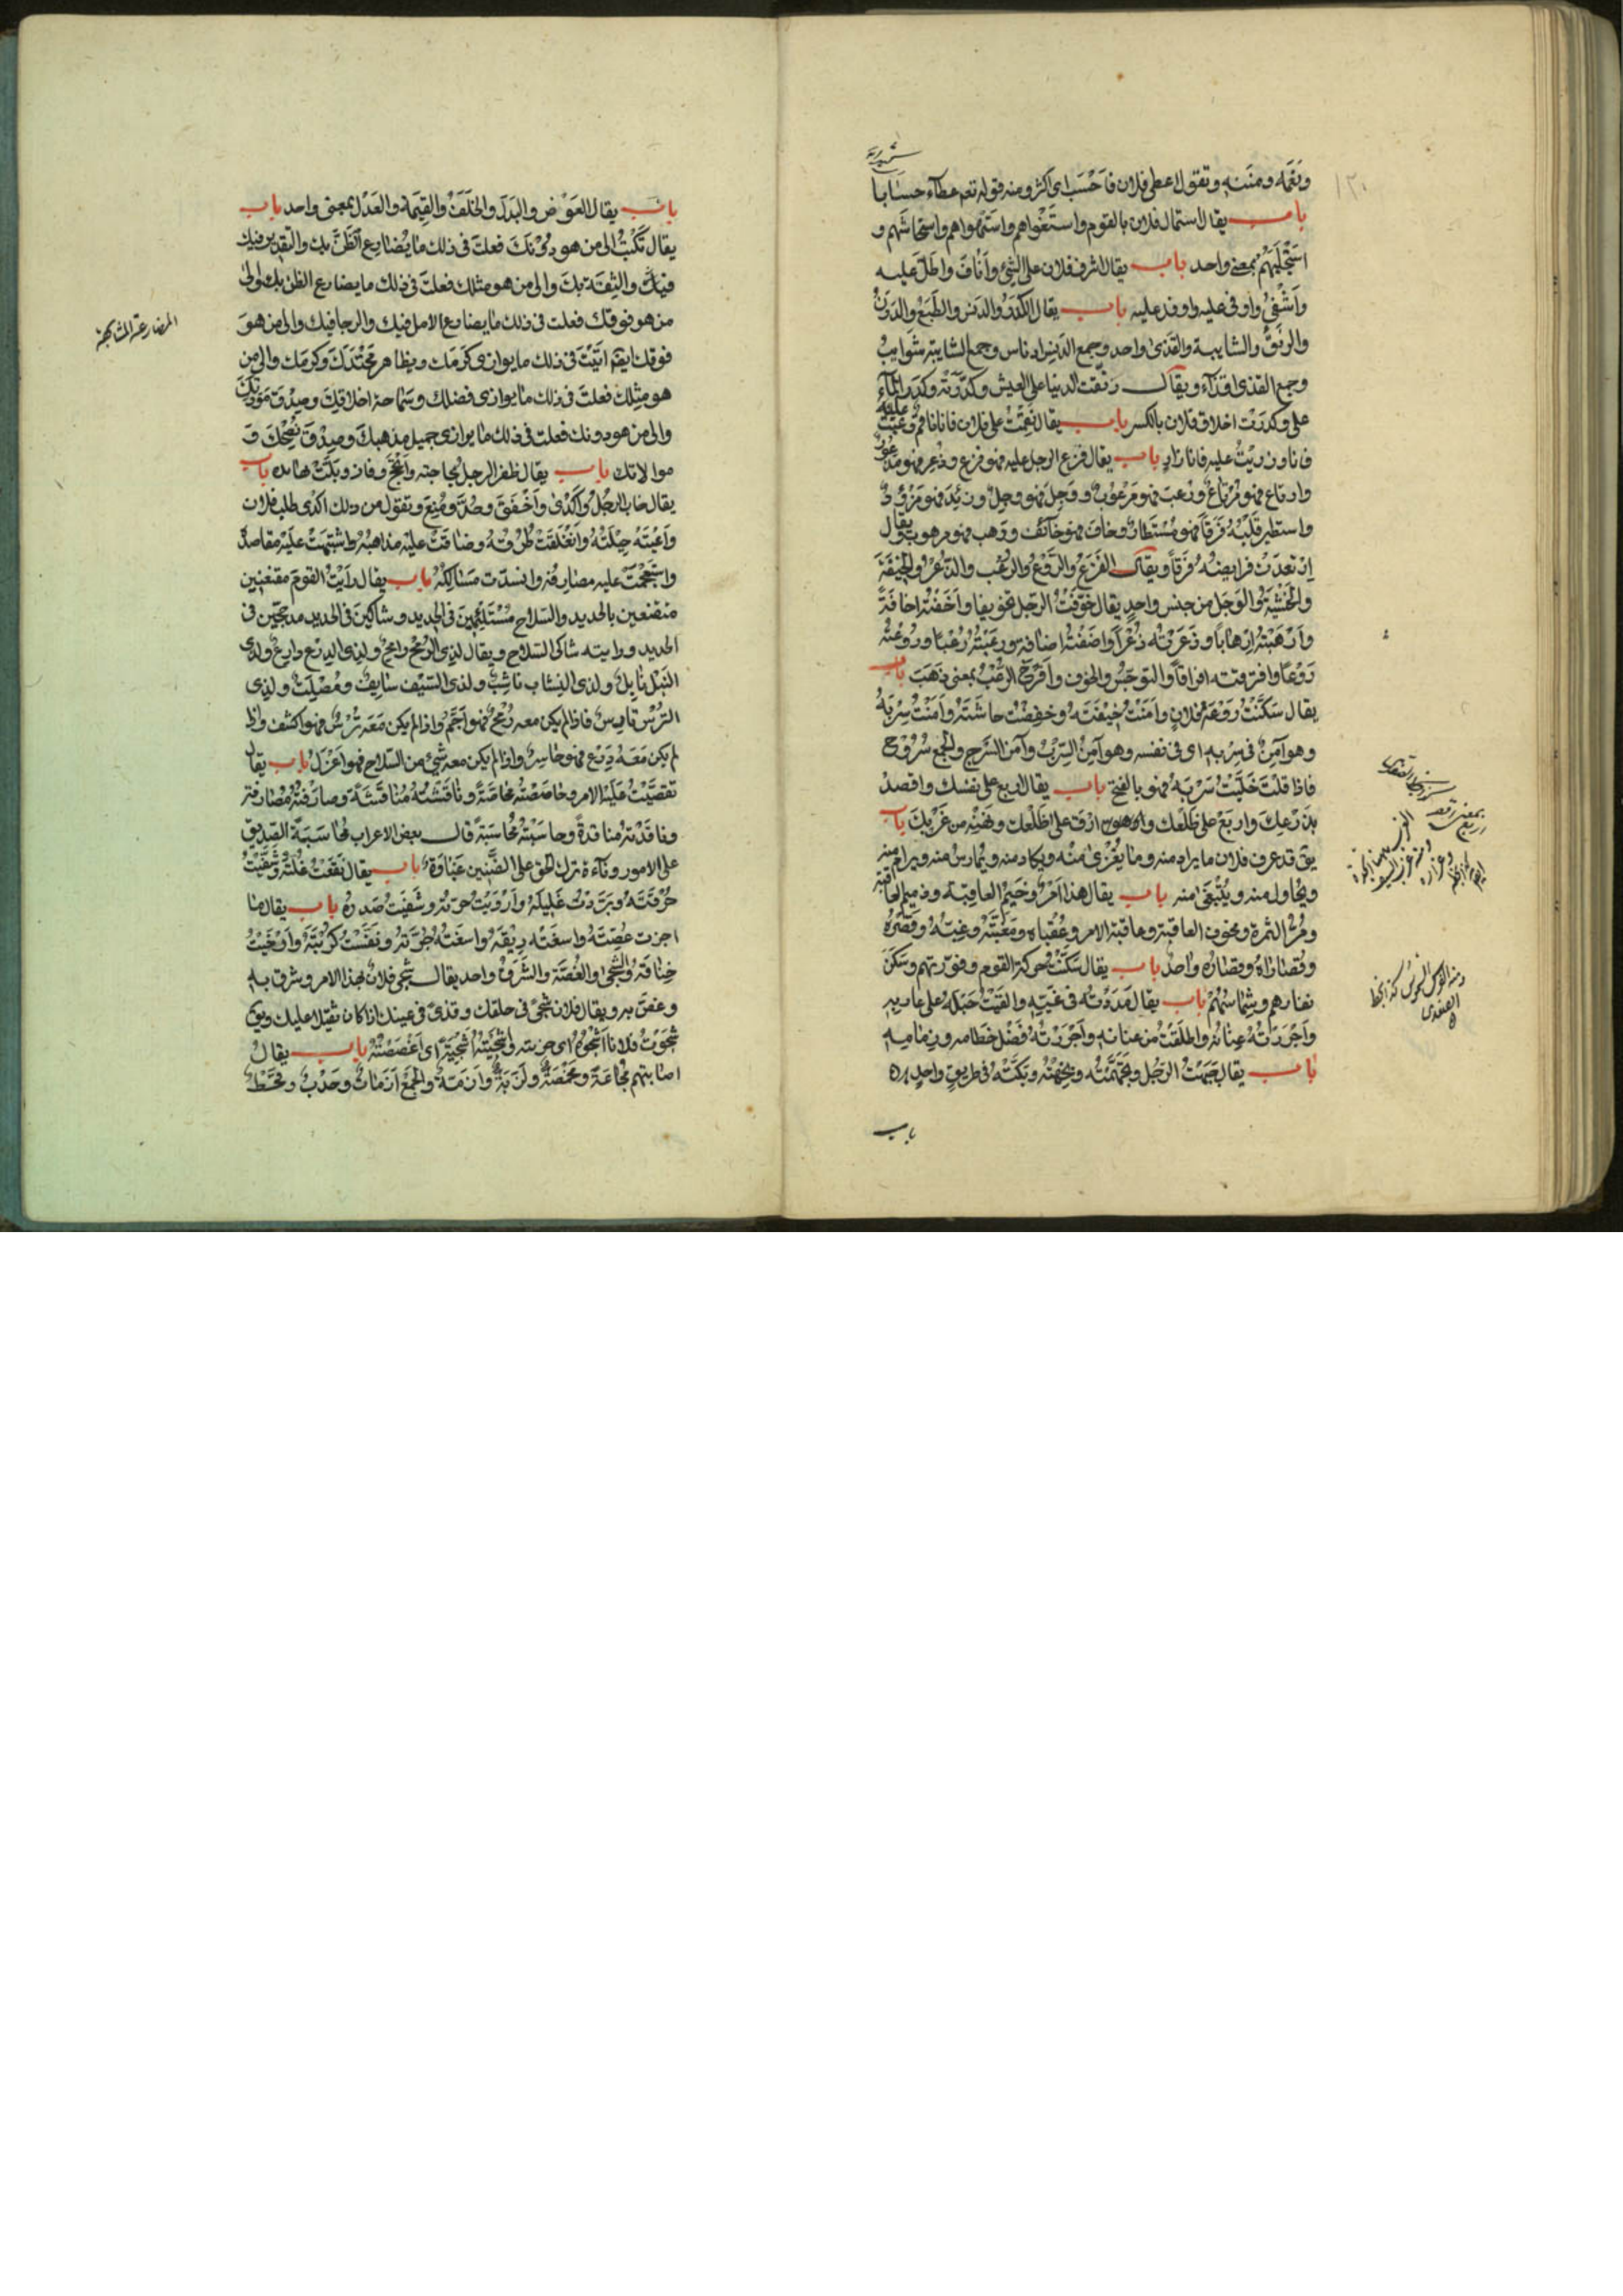 ونعمه ومننه وتقول اعطى فلان فاحسب اى اكثر ومنه قوله تعم عطآء حسابا
باب يقال استمال فلان بالقوم واستغواهم واستهواهم واستجاشهم و
استجلبهم بمعنى واحد باب يقال اشرف فلان على الشئ وأناف واطل عليه
وأشفى واوفى عليه واوفد عليه باب يقال الكدر والدنس والطبع والدرن
والرنق والشايبة والقذى واحد وجمع الدنس ادناس وجمع الشايبة شوايب
وجمع القذى اقذآء ويقال رنقت الدنيا على العيش وكدرته وكدر الماء
على وكدرت اخلاق فلان بالكسر باب يقال نقمت على فلان فانا ناقم وعتبت عليه
فانا وزريت عليه فانا زار باب يقال فزع الرجل عليه فهو فزع وذعر فهو مذعور
وارتاع فهو مرتاع ورعب فهو مرعوب ووجل فهو وجل وزئد فهو مزؤد
واستطير قلبه فرقا فهو مستطار وخاف فهو خائف ورهب فهو مرهوب يقال
ارتعدت فرايصه فرقا ويقال الفزع والروع والرعب والذعر والخيفة
والخشية والوجل من جنس واحد يقال خوفت الرجل تخويفا واخفته اخافة
وأرهبته إرهابا وذعرته ذعرا واضفته اضافة ورعبته رعبا وروعته
روعا وافرقته افراقا والتوجس والخوف وأفرخ الرعب بمعنى ذهب باب
يقال سكنت روعة فلان وآمنت خيفته وخفضت جاشته وآمنت سربه
وهو آمن فى سربه اى فى نفسه وهو آمن السرب وآمن السرج والجمع سروج
فاذا قلت خليت سربه فهو بالفتح باب يقال اربع على نفسك واقصد
بذرعك واربع على ظلعك وارق على ظلعك ونهنه من غربك باب
يق قد عرف فلان ما يراد منه وما يغزى منه ويكاد منه ويمارس منه ويرام منه
ويحاول منه ويبتغى منه باب يقال هذا امر وخيم العاقبة وذميم العاقبة
ومر الثمرة ومخوف العاقبة وعاقبة الامر وعقباه ومغبته وغبه وقصره
وقصاراه وقصاره واحد باب يقال سكنت حركة القوم وفورتهم وسكن
نفارهم وشماسهم باب يقال مددته فى غيه والقيت حبله على غاربه
وأجررته عنانه واطلقت من عنانه وأجررته فضل خطامه وزمامه
باب يقال جبهت الرجل وتجهمته ونجهته وبكته فى طريق واحد
باب
باب يقال العوض والبدل والخلف والقيمة والعدل بمعنى واحد باب
يقال تكتب الى من هو دونك فعلت فى ذلك ما يضارع الظن بك والتقدير فيك
فيك والثقة بك والى من هو مثلك فعلت فى ذلك ما يضارع الظن بك والى
من هو فوقك فعلت فى ذلك ما يضارع الامل فيك والرجا فيك والى من هو
فوقك ايضا اتيت فى ذلك ما يوازى كرمك ويظاهر محتدك وكرمك والى من
هو مثلك فعلت فى ذلك ما يوازى فضلك وسماحة اخلاقك وصدق مودتك
والى من هو دونك فعلت فى ذلك ما يوازى جميل مذهبك وصدق نصحك و
موالاتك باب يقال ظفر الرجل بحاجته وأنجح وفاز وبلت بها يده باب
يقال خاب الرجل واكدى واخفق وصد ومنع وتقول من ذلك اكدى طلب فلان
وأعيته حيلته وانغلقت طرقه وضاقت عليه مذاهبه واشتبهت عليه مقاصده
واستعجمت عليه مصارفه وانسدت مسالكه باب يقال رأيت القوم مقنعين
متقنعين بالحديد والسلاح مستلئمين فى الحديد وشاكين فى الحديد مدججين فى
الحديد ورايته شاكى السلاح ويقال لذى الرمح رامح ولذى الدرع دارع ولذى
النبل نابل ولذى النشاب ناشب ولذى السيف سايف ومصلت ولذى
الترس تارس فاذا لم يكن معه رمح فهو اجم واذا لم يكن معه ترس فهو اكشف واذا
لم يكن معه درع فهو حاسر واذا لم يكن معه شئ من السلاح فهو اعزل باب يقال
تقصيت عليه الامر وناقشته مناقشة وصارفته مصارفة
وناقدته مناقدة وحاسبته محاسبة قال بعض الاعراب محاسبة الصديق
على الامور دناءة وترك الحق على الضنين غباوة باب يقال نقعت غلته وشفيت
حرقته وبردت غليله وأرويت حرته وشفيت صدره باب يقال ما
اجزت غصته واسغت ريقه واسغت جرته ونفست كربته وأرخيت
خناقه والشجى والغصة والشرق واحد يقال شجى فلان بهذا الامر وشرق به
وغص به ويقال فلان شجى فى حلقك وقذى فى عينك اذا كان ثقيلا عليك ويق
شجوت فلانا اشجوه اى حزنته واشجيته اشجيه اى اغصصته باب يقال
اصابتهم مجاعة ومخمصة ولزبة وأزمة والجمع أزمات وجدب وقحط
المضارعة المشابهة